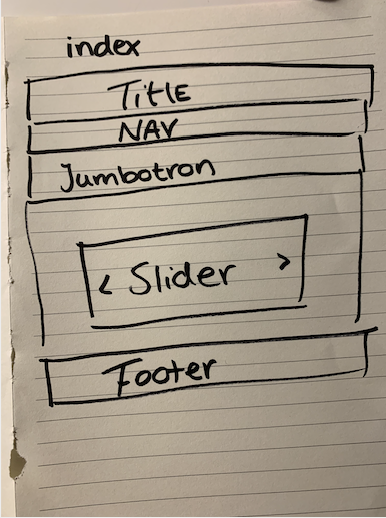 index
Title
NAV
Jumbotron
< Slider >
Footer